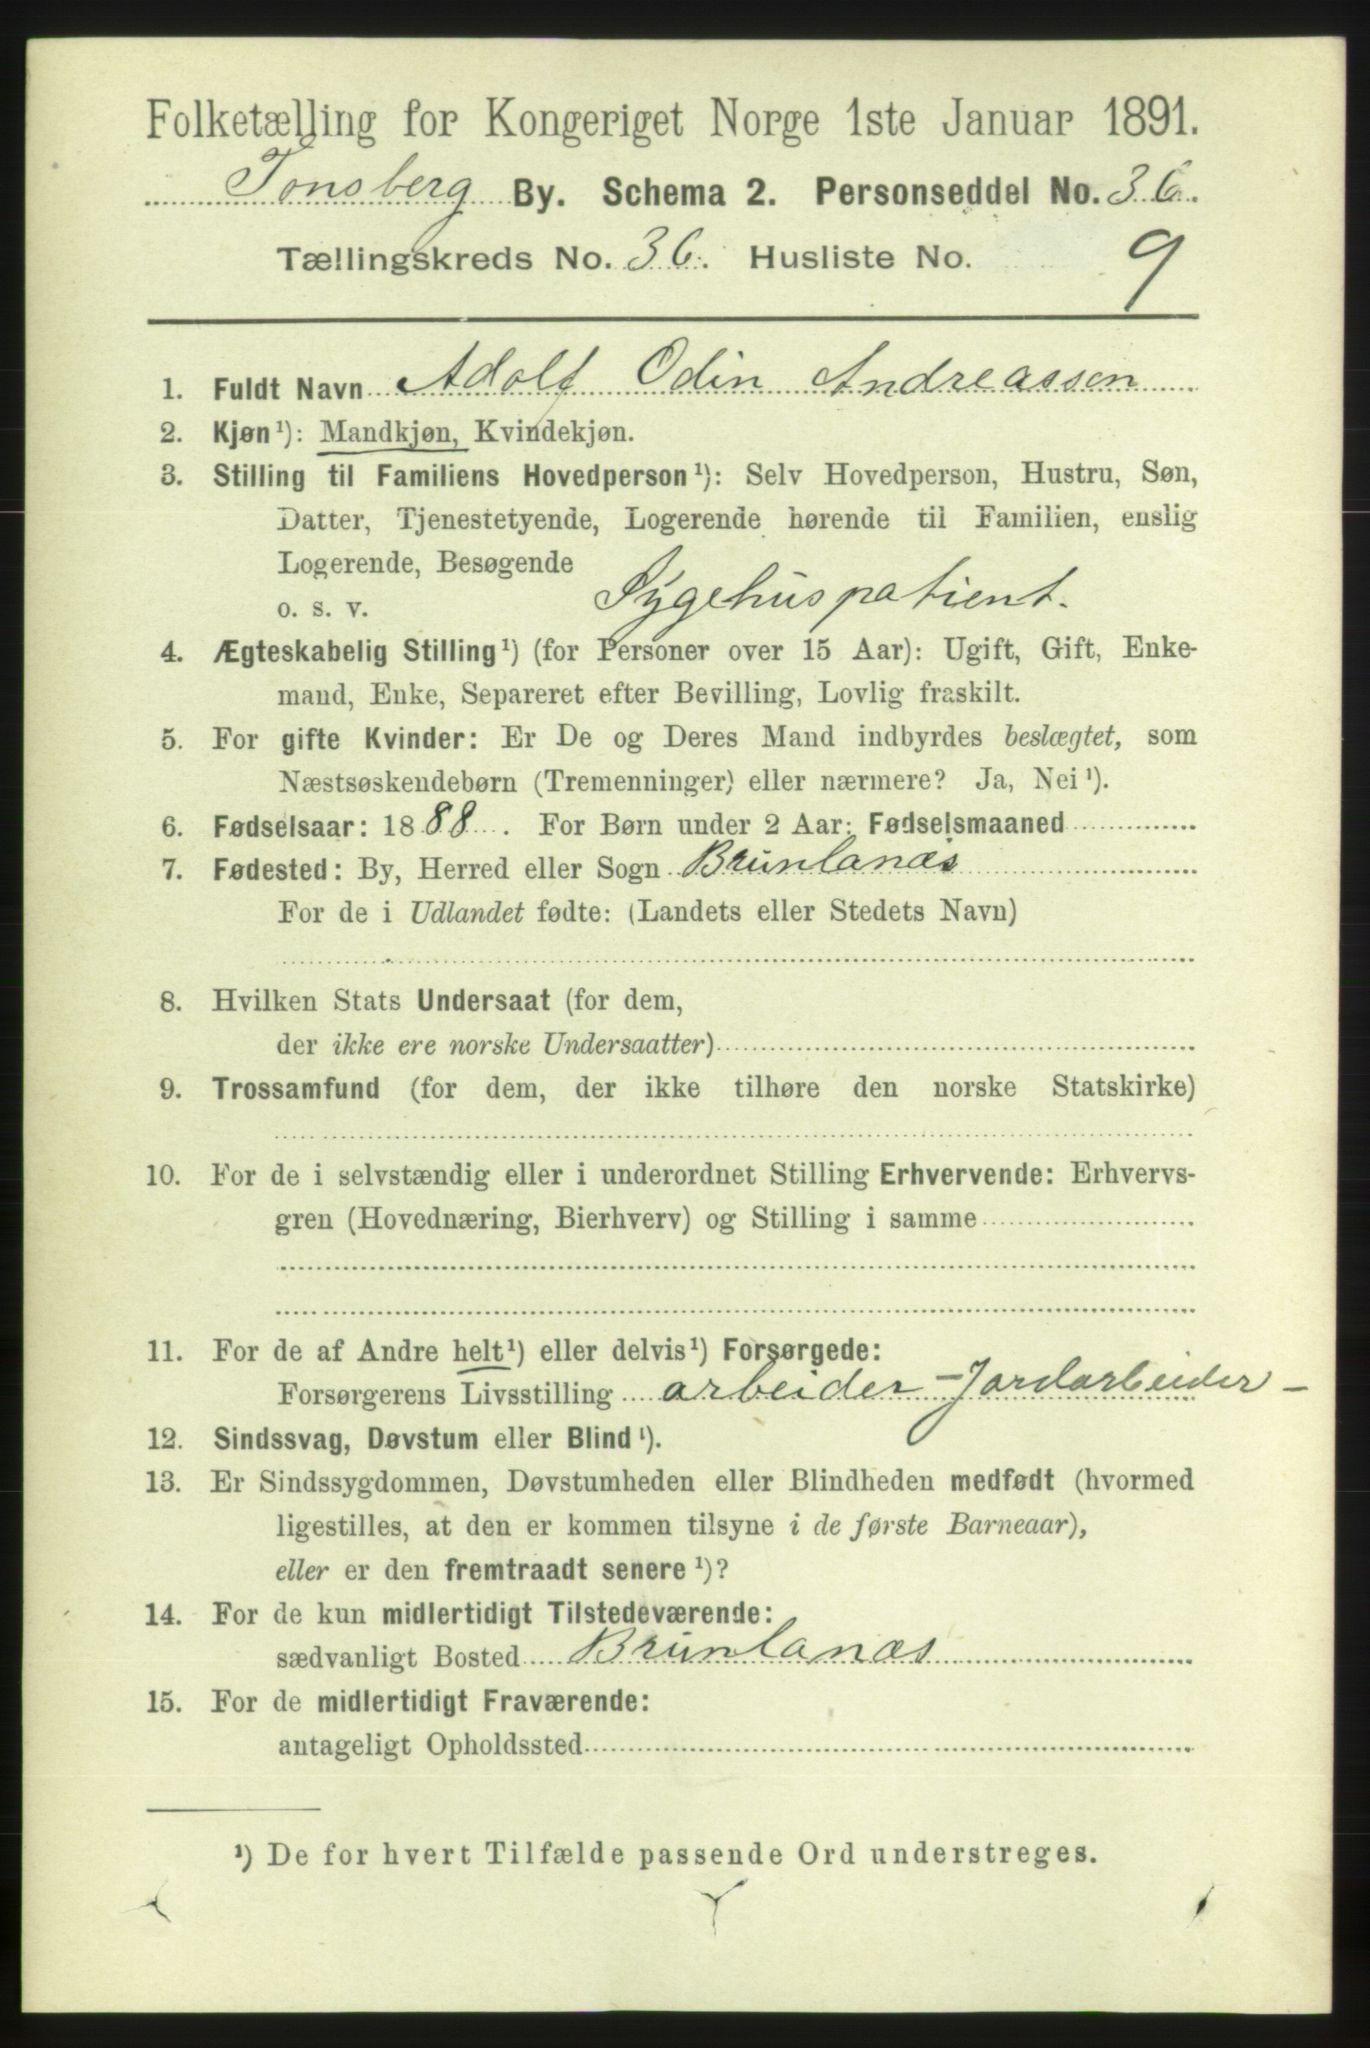 Folketælling for Kongeriget Norge 1ste Januar 1891.
Tønsberg By. Schema 2. Personseddel No. 36.
Tællingskreds No. 36. Husliste No. 9
1. Fuldt Navn Adolf Odin Andreassen
2. Kjøn¹): Mandkjøn, Kvindekjøn.
3. Stilling til Familiens Hovedperson¹): Selv Hovedperson, Hustru, Søn,
Datter, Tjenestetyende, Logerende hørende til Familien, enslig
Logerende, Besøgende
o. s. v. Sygehuspatient.
4. Ægteskabelig Stilling¹) (for Personer over 15 Aar): Ugift, Gift, Enke-
mand, Enke, Separeret efter Bevilling, Lovlig fraskilt.
5. For gifte Kvinder: Er De og Deres Mand indbyrdes beslægtet, som
Næstsøskendebørn (Tremenninger) eller nærmere? Ja, Nei¹).
6. Fødselsaar: 1888. For Børn under 2 Aar: Fødselsmaaned
7. Fødested: By, Herred eller Sogn Brunlanæs
For de i Udlandet fødte: (Landets eller Stedets Navn)
8. Hvilken Stats Undersaat (for dem,
der ikke ere norske Undersaatter)
9. Trossamfund (for dem, der ikke tilhøre den norske Statskirke)
10. For de i selvstændig eller i underordnet Stilling Erhvervende: Erhvervs-
gren (Hovednæring, Bierhverv) og Stilling i samme
11. For de af Andre helt¹) eller delvis¹) Forsørgede:
Forsørgerens Livsstilling arbeider - Jordarbeider -
12. Sindssvag, Døvstum eller Blind¹).
13. Er Sindssygdommen, Døvstumheden eller Blindheden medfødt (hvormed
ligestilles, at den er kommen tilsyne i de første Barneaar),
eller er den fremtraadt senere¹)?
14. For de kun midlertidigt Tilstedeværende:
sædvanligt Bosted Brunlanæs
15. For de midlertidigt Fraværende:
antageligt Opholdssted
¹) De for hvert Tilfælde passende Ord understreges.